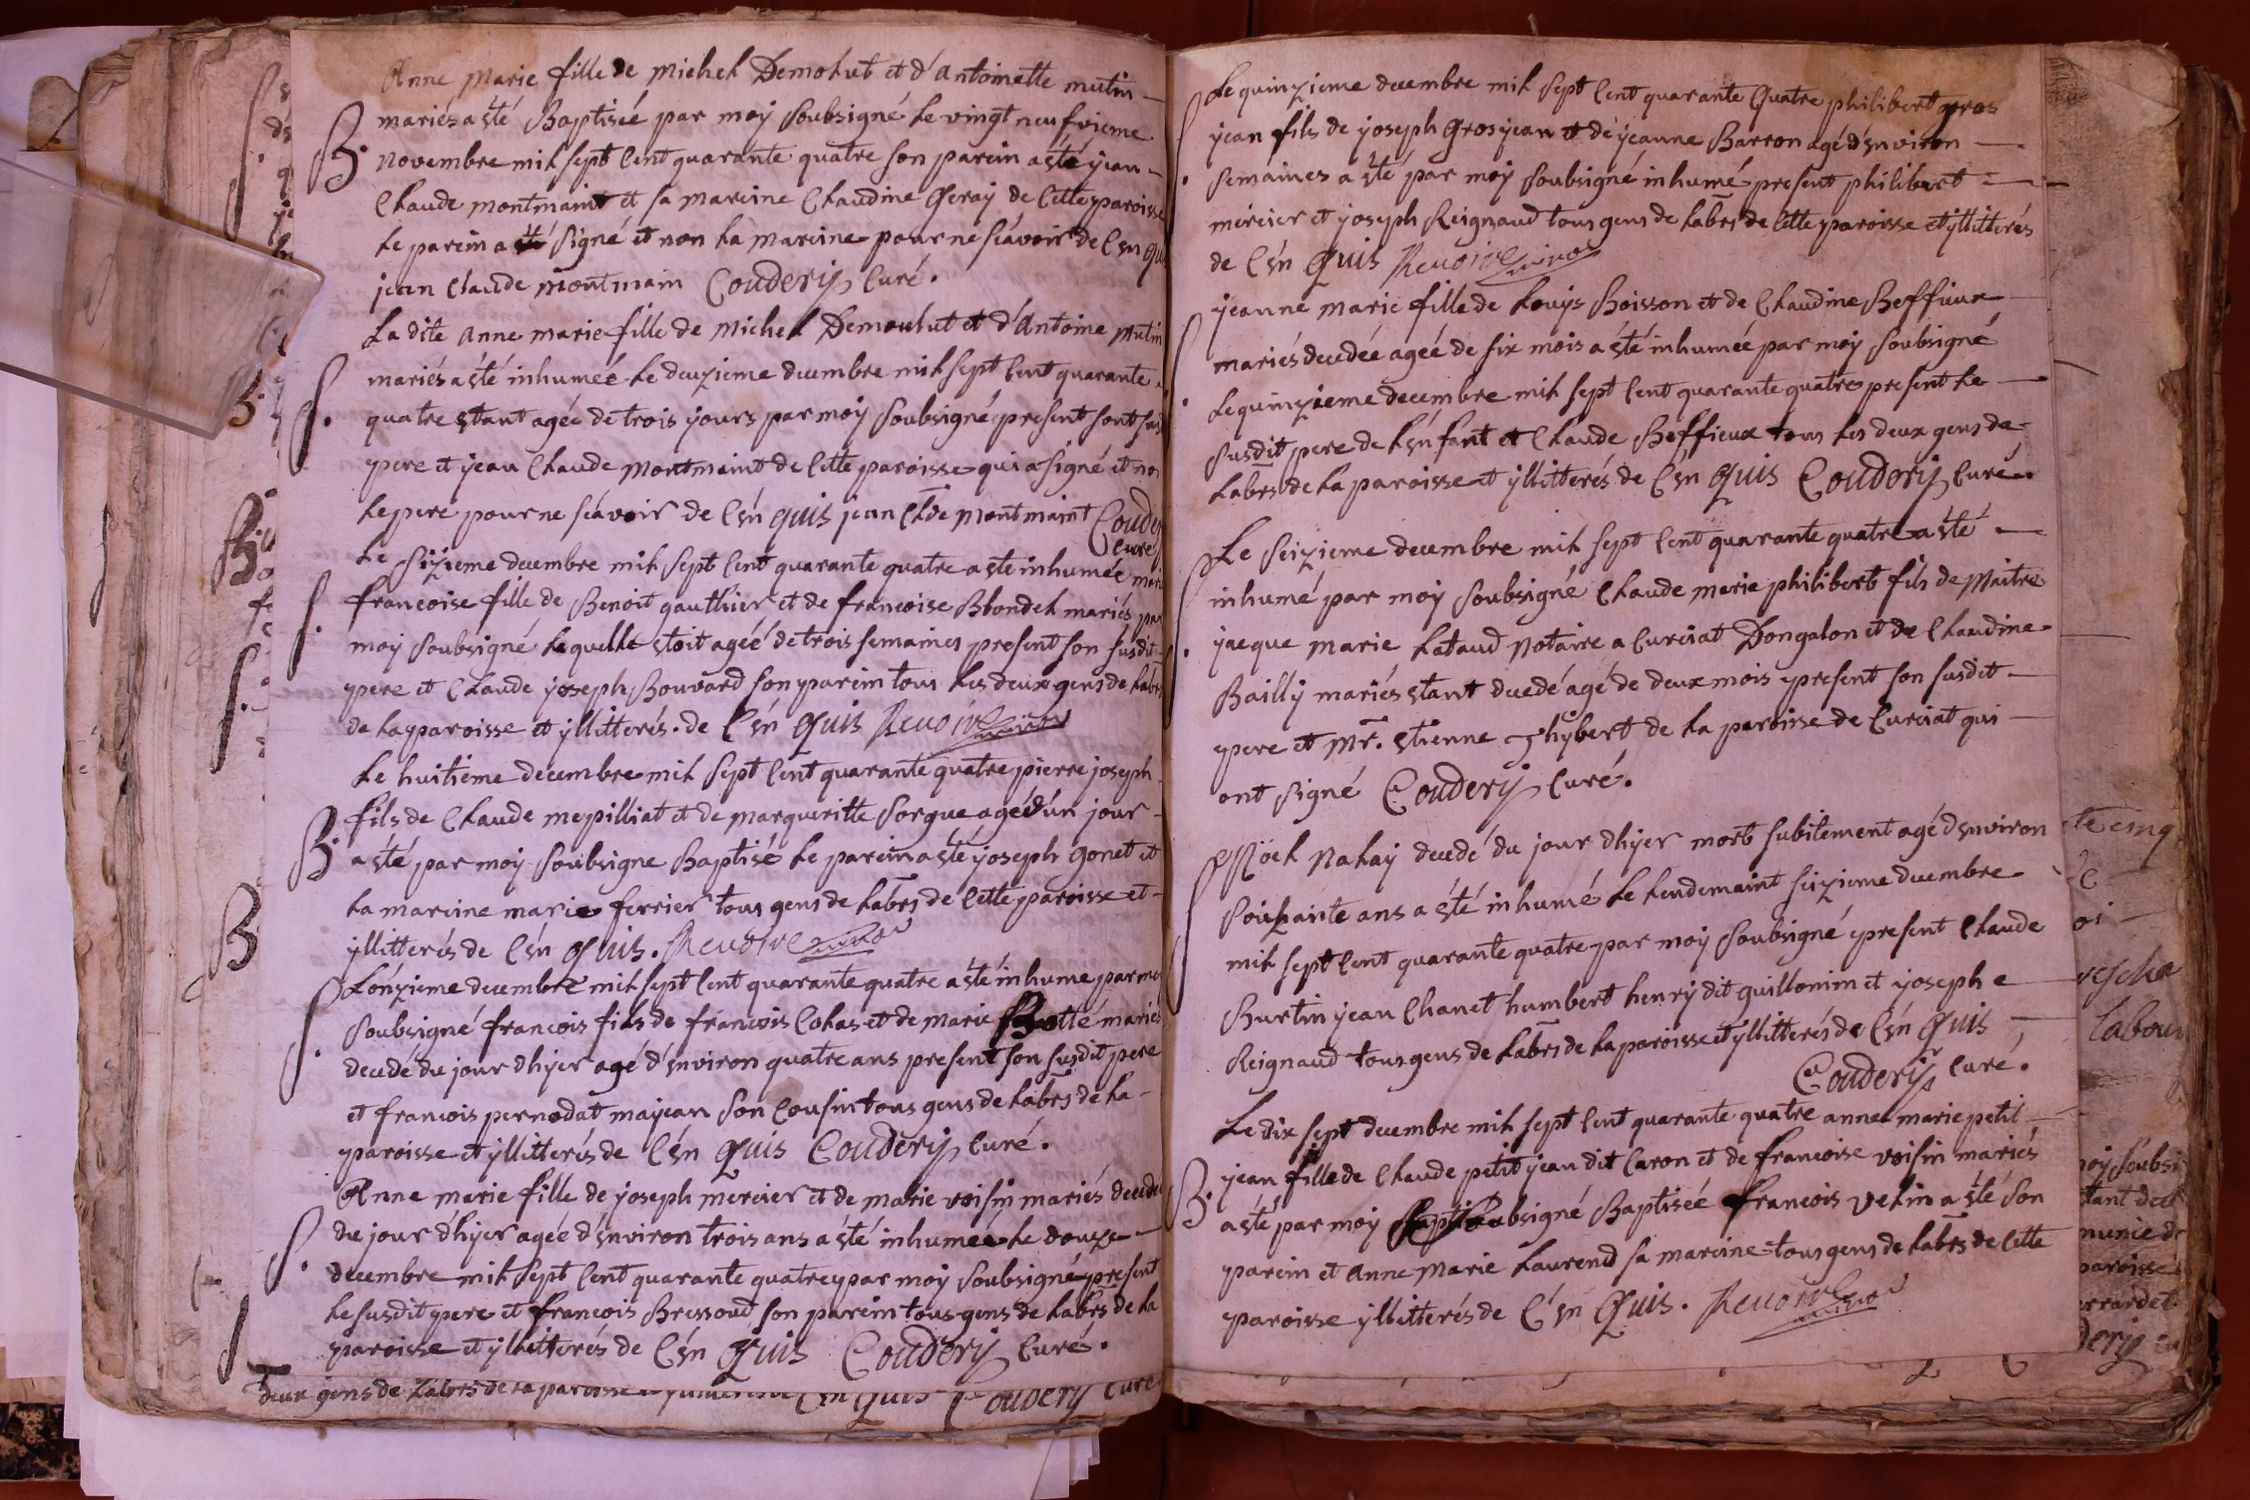 Anne Marie fille de Michel Demolut et d'Antoinette mutin
mariés a été Baptiseé par moy soubsigné le vingt neufvieme
B. novembre mil sept cent quarante quatre son parein a été jean
Claude montmaint et sa mareine Claudine Geray de cette paroisse
le parein a été signé et non la mareine pour ne scavoir de ce en qui
jean claude montmain Coudery Curé.
La dite anne marie fille de michel Demoulut et d'Antoine mutin
mariés a été inhumeé le deuzieme decembre mil sept cent quarante
S. quatre etant ageé de trois jours par moy soubsigné present sont sus
pere et jean Claude montmaint de cette paroisse qui a signé et non
le pere pour ne scavoir de ce en quis jean Cl.de montmaint Coudery
curé
Le sizieme decembre mil sept cent quarante quatre a été inhumeé marie
S. francoise fille de Benoit gauthier et de francoise Blondel mariés par
moy soubsigné laquelle etoit ageé de trois semaines present son susdit
pere et Claude joseph Bouvard son parein tous les deux gens de labrs
de la paroisse et yllitterés. de ce en quis Revoire vicaire
Le huitieme decembre mil sept cent quarante quatre pierre joseph
B. fils de Claude mepilliat et de margueritte sorgue agé d'un jour
a été par moy soubsigne Baptisé le parein a été joseph gonet et
la mareine marie ferrier tous gens de labrs de cette paroisse et
yllitterés de ce en quis. Revoire vicaire
L'onzieme decembre mil sept cent quarante quatre a été inhume par moy
S. soubsigné francois fils de francois Colas et de marie Botté mariés
decedé du jour d'hyer agé d'environ quatre ans present son susdit pere
et francois pernodat majean son cousin tous gens de labrs de la
paroisse et yllitterés de ce en quis Coudery Curé.
Anne marie fille de joseph mercier et de marie voisin mariés decedeé
S. du jour d'hyer ageé d'environ trois ans a été inhumeé le douze
decembre mil sept cent quarante quatre par moy soubsigné present
le susdit pere et francois Bressoud son parein tous gens de labrs de la
paroisse et yllitterés de ce en quis Coudery Curé.
deux gens de labrs de la paroisse et yllitterés de ce en quis Coudery Curé
Le quinzieme decembre mil sept cent quarante quatre philibert gros
jean fils de joseph Grosjean et de jeanne Barron agé d'environ
S. semaines a été par moy soubsigné inhumé present philibert
mercier et joseph Reignaud tous gens de labrs de cette paroisse et yllitterés
de ce en quis Revoire vicaire
jeanne marie fille de Louys Boisson et de Claudine Beffieux
S. mariés decedeé ageé de six mois a été inhumeé par moy soubsigné
Le quinzieme decembre mil sept cent quarante quatre present le
susdit pere de l'enfant et Claude Beffieux tous les deux gens de
labrs de la paroisse et yllitterés de ce en quis Coudery Curé.
Le seizieme decembre mil sept cent quarante quatre a été
inhumé par moy soubsigné Claude marie philibert fils de Maitre
S. jacque marie Lataud notaire a Curciat Dongalon et de Claudine
Bailly mariés etant decedé agé de deux mois present son susdit
pere et Mr. etienne ghybert de la paroisse de Curciat qui
ont signé Coudery Curé.
Roch Nalay decedé du jour d'hyer mort subitement agé d'environ
soixante ans a été inhumé le lendemaint seizieme decembre
S mil sept cent quarante quatre par moy soubsigné present Claude
Burtin jean Chanet humbert henry dit guillonim et joseph
Reignaud tous gens de labrs de la paroisse et yllitterés de ce en quis
Coudery Curé.
Le dix sept decembre mil sept cent quarante quatre anne marie petit
jean fille de Claude petitjean dit Caron et de francoise voisin mariés
B. a été par moy soubsigné Baptiseé francois velin a été son
parein et Anne Marie Laurend sa mareine tous gens de labrs de cette
paroisse yllitterés de ce en quis. Revoire vicaire